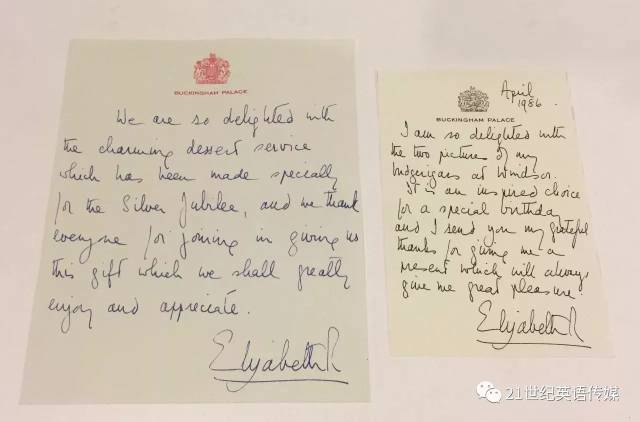 BUCKINGHAM PALACE
We are so delighted with
the charming dessert service
which has been made specially
for the Silver Jubilee, and we thank
everyone for joining in giving us
this gift which we shall greatly
enjoy and appreciate.
Elizabeth R
April
1986.
BUCKINGHAM PALACE
I am so delighted with
the two pictures of my
budgerigars at Windsor.
It is an inspired choice
for a special birthday
and I send you my grateful
thanks for giving me a
present which will always
give me great pleasure.
Elizabeth R
21世纪英语传媒